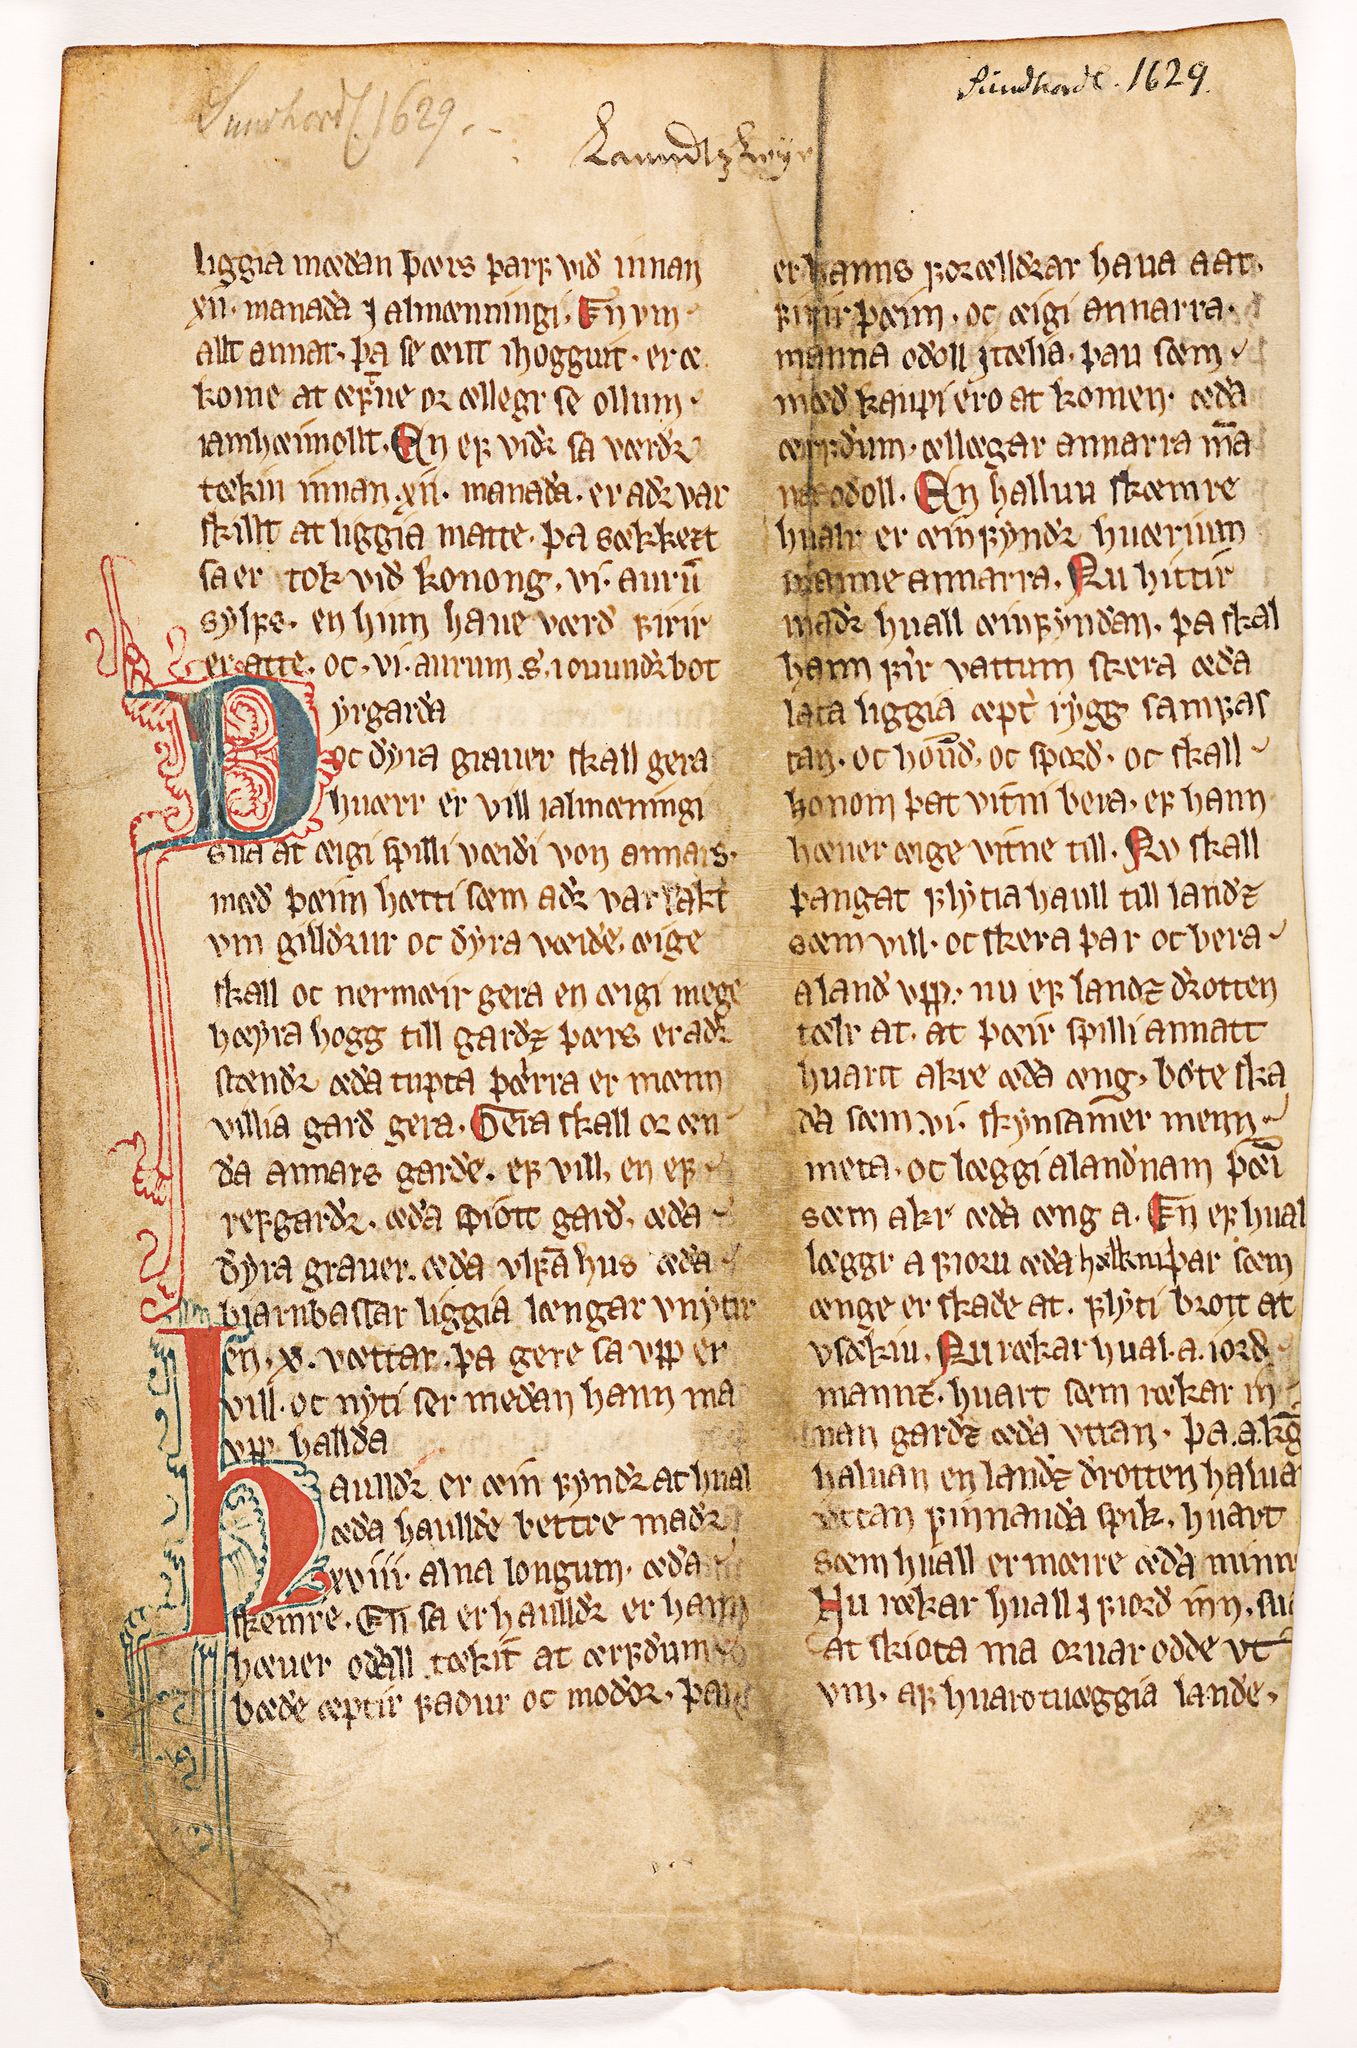 Sundhordl. 1629.
Sundhordl. 1629.
liggia mædan þærs þarf vid innan
xii. manada j almænningi. En vm
allt annat. þa se æitt ihogguit. er æ
kome at æfne or ællegr se ollum
iamhæimollt. En ef vidr sa værdr
tækin innan .xii. manada. er adr var
skillt at liggia matte. þa sækkezt
sa er tok vid konong. vi. aurū
sylfs. en hinn haue værd firir
er atte. oc .vi. aurum .s. iouundrbot
Dyrgarda
oc dyra grauer skall gera
huærr er vill ialmæningi
sua at æigi spilli væidi von annars.
mæd þæim hætti sæm adr var sakt
vm gilldrur oc dyra væide. æige
skall oc nermæir gera en æigi mege
høyra hogg till gardz þærs er adr
stændr æda tupta þærra er mænn
villia gard gera. Gera skall or æn
da annars garde. ef vill, en ef
refgardr. æda þiott gard. æda
dyra grauer. æda vlfa hus æda
biarnbassar liggia længar vnytir
en .x. vættar. þa gere sa vpp er
vill. oc nyti ser medan hann ma
vpp hallda
haulldr er æin fyndr at hual
æda haullde bettre madr
xviii. alna longum. æda
skemre. En sa er haulldr er hann
hæuer odall tækit at ærfdum
bæde æptir fadur oc modor. þau
er hanns forælldrar haua aat.
firir þæim. oc æigi annarra
manna odoll jtælia. þau sæm
mæd kaupi ero at komen. æda
ærfdum. ællægar annarra m̄a
odoll. En halluu skæmre
hualr er æinfyndr huærium
manne annarra. Nu hittir
madr huall æinfyndan. þa skal
hann fir vattum skera æda
lata liggia æpt rygg samfas
tan. oc hoūd. oc spord. oc skall
honom þat vitni bera. ef hann
hæuer æige vitne till. Nv skall
þangat flytia huall till landz
sæm vill. oc skera þar oc bera
aland vpp. nu ef landz drotten
tælr at. at þæir spilli annatt
huart akre æda æng. bøte ska
da sæm .vi. skynsamer menn
meta. oc læggi alandnam þæi
sæm akr æda æng a. En ef hual
læggr a fioru æda hælkni þar sæm
ænge er skade at. flyti brott at
vsækiu. Nu rækar hual .a. iord
mannz. huart sæm rækar in
nan gardz æda vttan. þa .a. kg
haluan en landz drotten halua
vttan finnanda spik. huart
sæm huall er mæire æda minn
Nu rækar huall j fiord inn. sua
at skiota ma oruar odde vt
vm. af huarotuæggia lande.